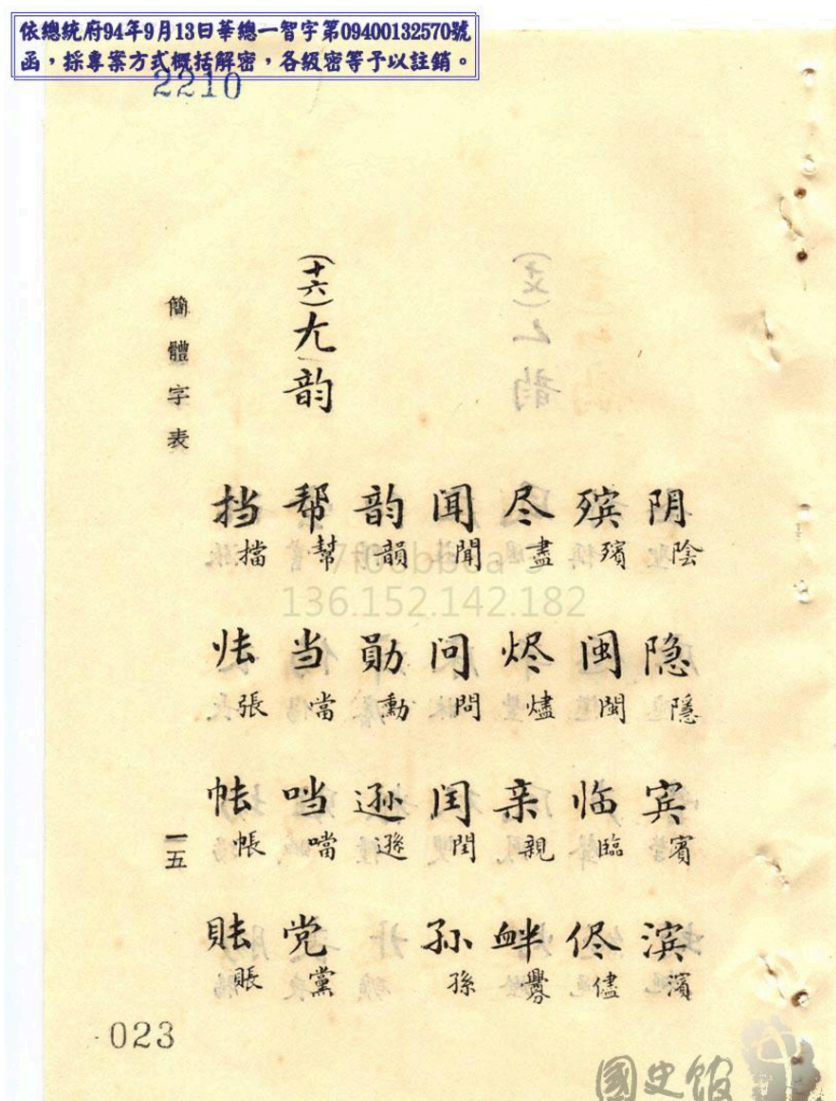 依總統府94年9月13日華總一智字第09400132570號
函，採專案方式概括解密，各級密等予以註銷。
2210
阴陰 隐隱 宾賓 滨濱
殡殯 闽閩 临臨 侭儘
尽盡 烬燼 亲親 衅釁
闻聞 问問 闰閏 孙孫
韵韻 勋勳 逊遜
(十六)尢韵
帮幫 当當 噹 党黨
挡擋 張 帳 賬
簡體字表
一五
023
136.152.142.182
國史館